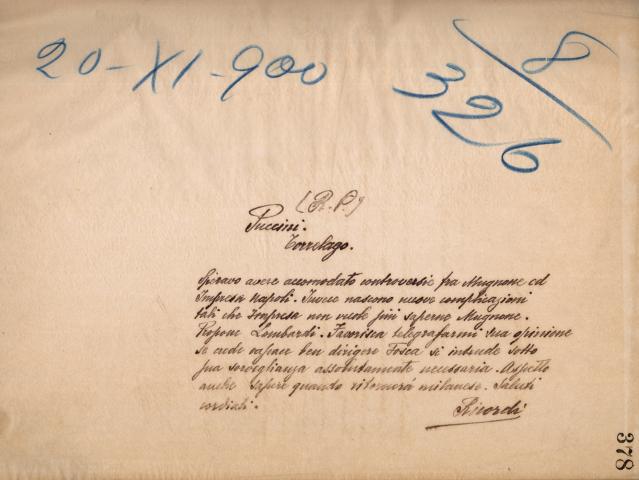 20-XI-900
8/326
(R.P.)
Puccini.
Torrelago.
Speravo avere accomodato controversie fra Mugnone ed
Impresa Napoli. Invece nascono nuove complicazioni
tali che Impresa non vuole più saperne Mugnone.
Propone Lombardi. Favorisca telegrafarmi sua opinione
se crede capace ben dirigere Tosca si intende sotto
sua sorveglianza assolutamente necessaria. Aspetto
anche sapere quando ritornerà milanese. Saluti
cordiali.
Ricordi
378